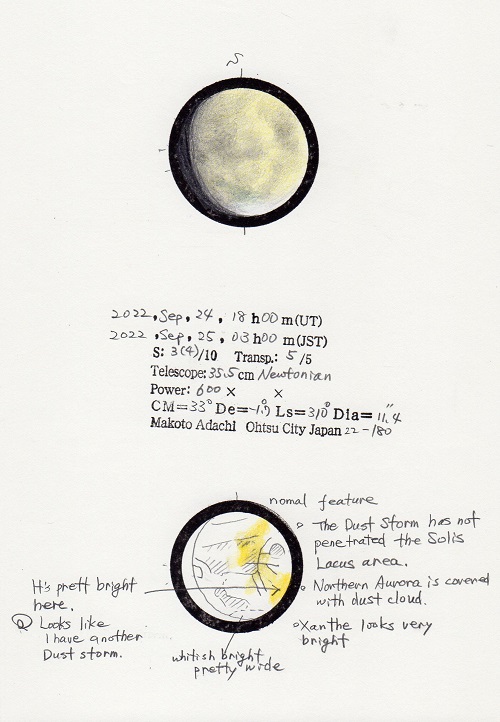 S
2022, Sep, 24, 18h00m(UT)
2022, Sep, 25, 03h00m(JST)
S: 3(4)/10 Transp.: 5/5
Telescope: 35.5cm Newtonian
Power: 600× ×
CM=33° De=-1.9 Ls=310° Dia=11.″4
Makoto Adachi Ohtsu City Japan 22-180
nomal feature
The Dust Storm has not
penetrated the Solis
Lacus area.
Northern Aurora is covered
with dust cloud.
Xanthe looks very
bright
It's prett bright
here.
Looks like
I have another
Dust storm.
whitish bright
pretty wide